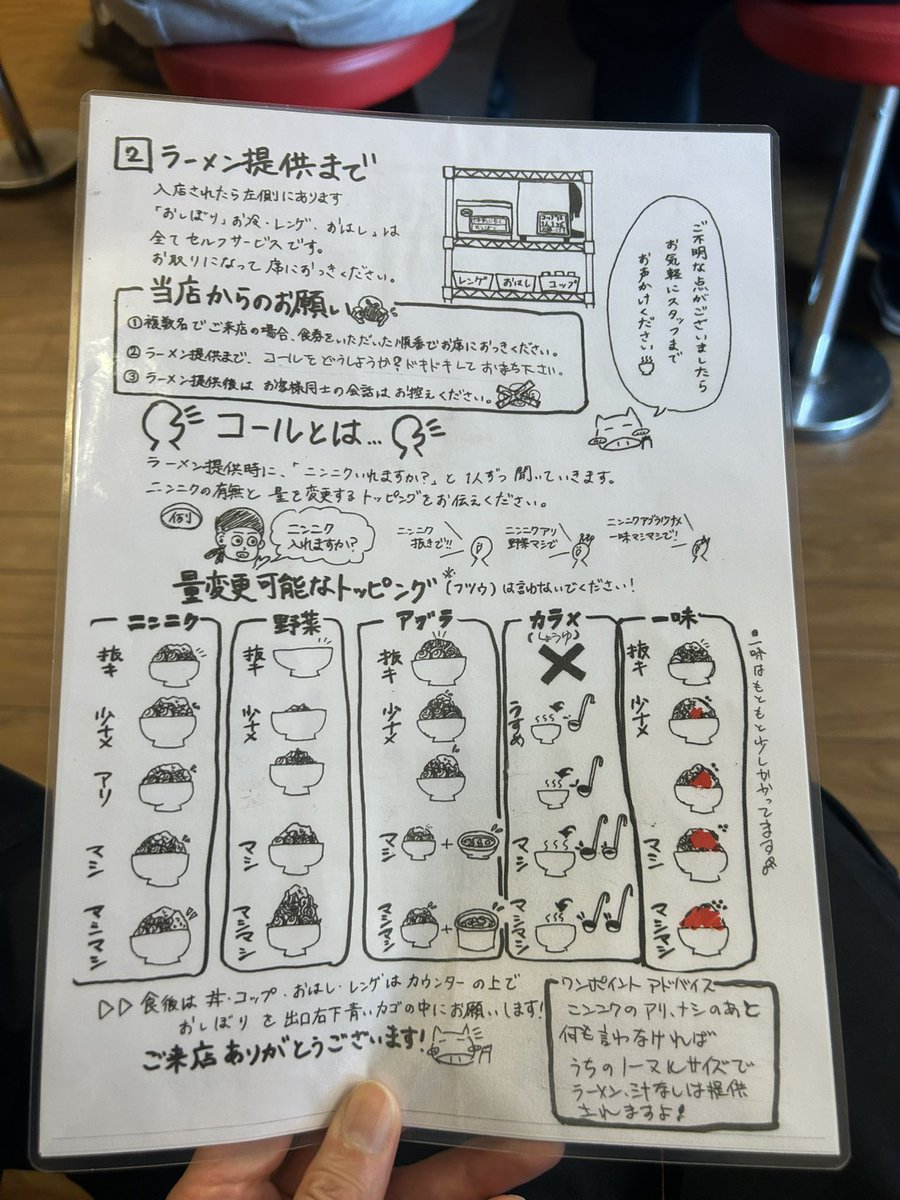 2 ラーメン提供まで
入店されたら左側にあります
「おしぼり」お冷・レンゲ・おはし」は
全てセルフサービスです。
お取りになって席におつきください。
レンゲ おはし コップ
ご不明な点がございましたら
お気軽にスタッフまで
お声かけください
当店からのお願い
① 複数名でご来店の場合、食券をいただいた順番でお席におつきください。
② ラーメン提供まで、コールをどうしようか?ドキドキしてお待ち下さい。
③ ラーメン提供後はお客様同士の会話はお控えください。
コールとは…
ラーメン提供時に、「ニンニクいれますか?」と1人ずつ聞いていきます。
ニンニクの有無と量を変更するトッピングをお伝えください。
例
ニンニク
入れますか?
ニンニク
抜きで!!
ニンニクアリ
野菜マシで
ニンニクアブラカラメ
一味マシマシで!
量変更可能なトッピング※(フツウ)は言わないでください!
ニンニク
抜キ
少ナメ
アリ
マシ
マシマシ
野菜
抜キ
少ナメ
マシ
マシマシ
アブラ
抜キ
少ナメ
マシ +
マシマシ +
カラメ
(しょうゆ)
うすめ
マシ
マシマシ
一味
抜キ
少ナメ
マシ
マシマシ
●一味はもともと少しかかってます
▷▷ 食後は丼・コップ・おはし・レンゲはカウンターの上で
おしぼりを出口右下青いカゴの中にお願いします!
ご来店ありがとうございます!
ワンポイントアドバイス
ニンニクのアリ、ナシのあと
何も言わなければ
うちのノーマルサイズで
ラーメン、汁なしは提供
されますよ!